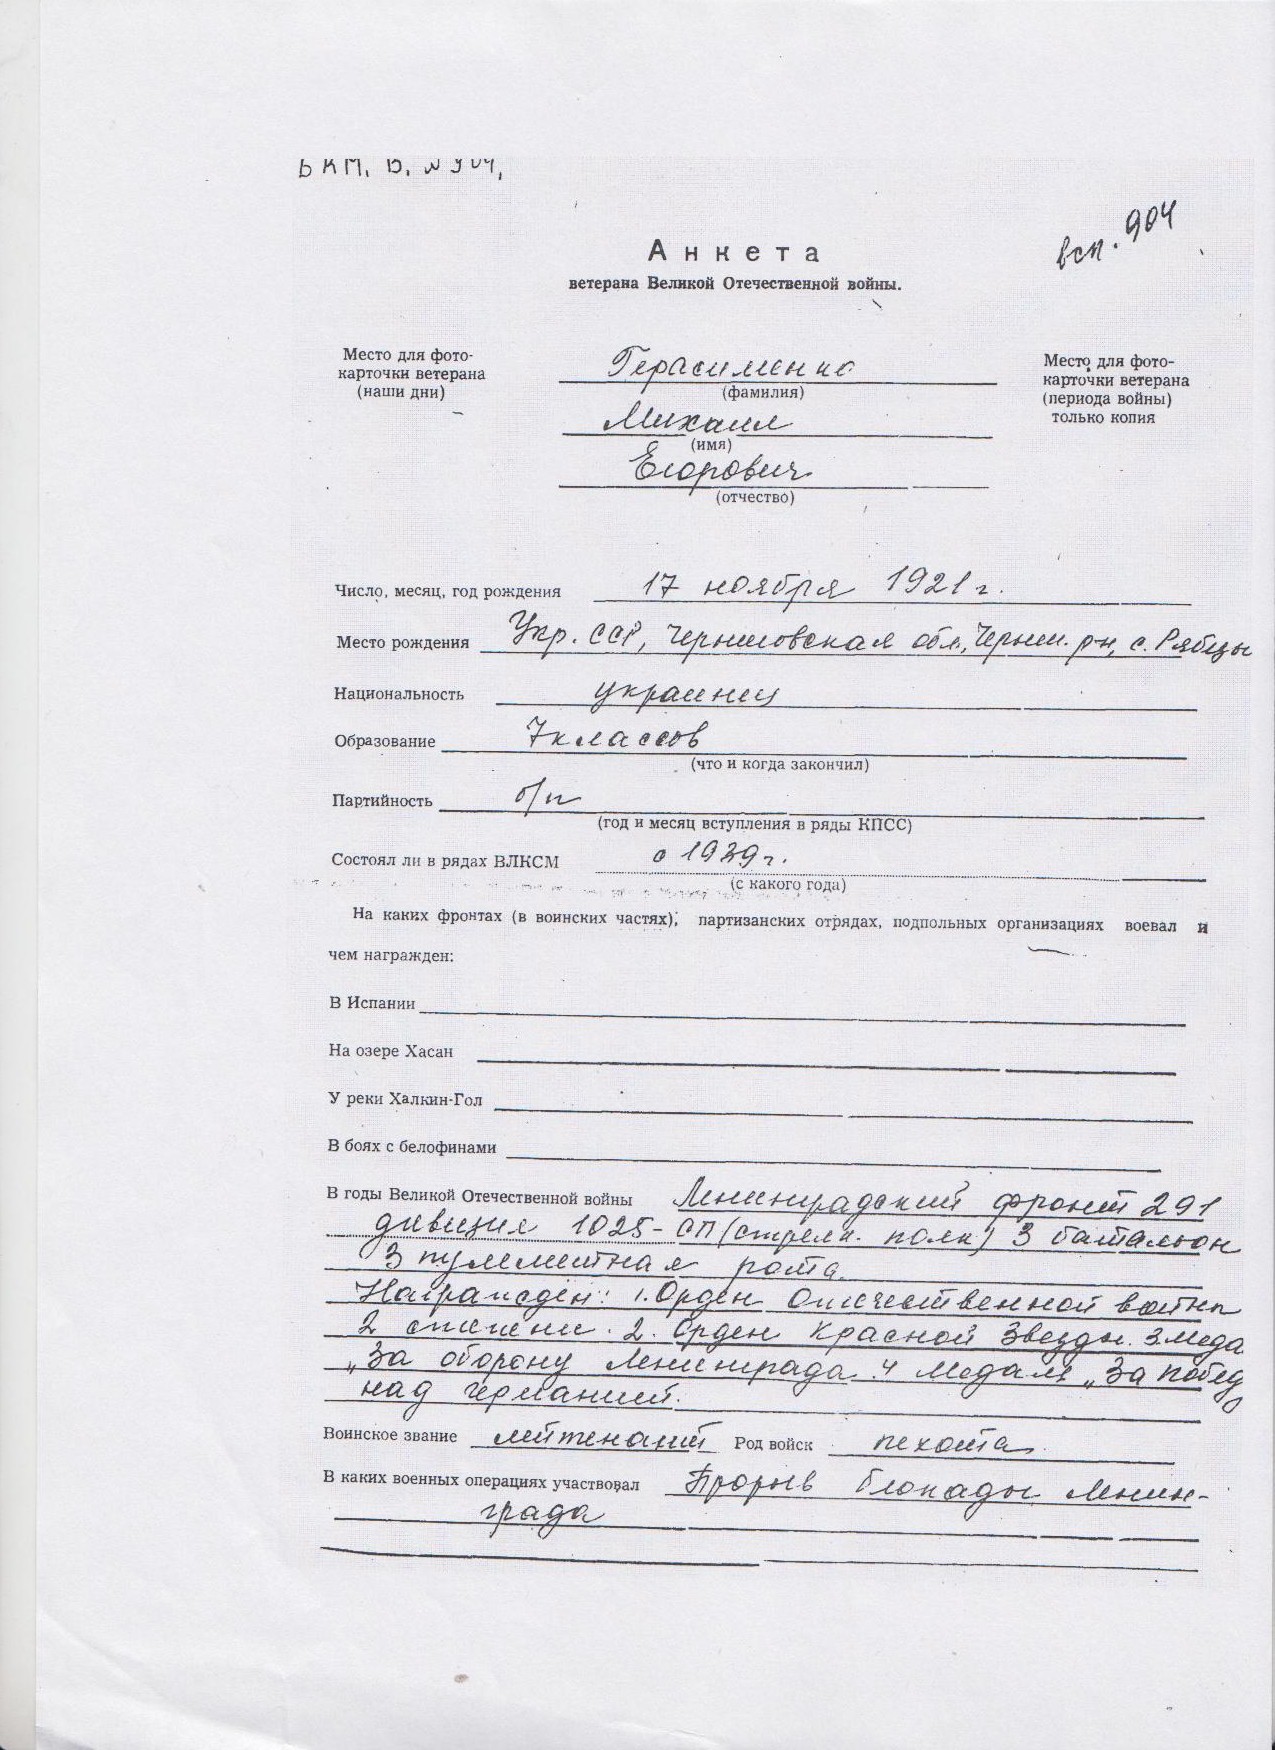 вкп. 904
Анкета
ветерана Великой Отечественной войны.
Место для фото-
карточки ветерана
(наши дни)
Герасименко
(фамилия)
Михаил
(имя)
Егорович
(отчество)
Место для фото-
карточки ветерана
(периода войны)
только копия
Число, месяц, год рождения 17 ноября 1921 г.
Место рождения Укр. ССР, Черниговская обл., Черниг. р-н, с. Рябцы
Национальность украинец
Образование 7 классов
(что и когда закончил)
Партийность б/п
(год и месяц вступления в ряды КПСС)
Состоял ли в рядах ВЛКСМ с 1939 г.
(с какого года)
На каких фронтах (в воинских частях), партизанских отрядах, подпольных организациях воевал и
чем награжден:
В Испании
На озере Хасан
У реки Халкин-Гол
В боях с белофинами
В годы Великой Отечественной войны Ленинградский фронт 291
дивизия 1025-СП (стрелк. полк) 3 батальон
3 пулеметная рота
Награжден: 1. Орден Отечественной войны
2 степени. 2. Орден Красной Звезды. 3 меда
„За оборону Ленинграда. 4 Медаль „За побед
над Германией.
Воинское звание лейтенант Род войск пехота
В каких военных операциях участвовал Прорыв блокады Ленин-
града